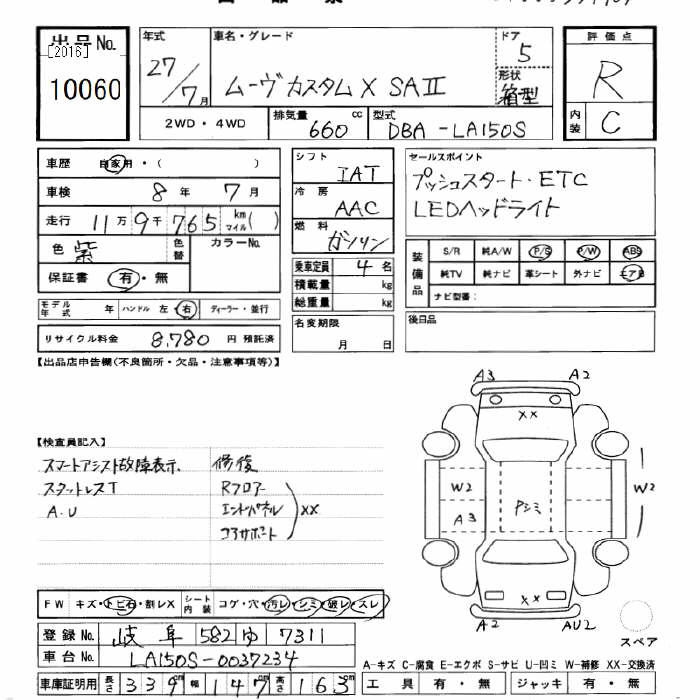 出品No.
[2016]
10060
年式
27/7月
車名・グレード
ムーヴカスタムX SAⅡ
ドア
5
形状
箱型
評価点
R
内装
C
2WD・4WD
排気量
660 cc
型式
DBA-LA150S
車歴 自家用・( )
車検 8年 7月
走行 11万9千765 km マイル( )
色 紫
色替
カラーNo.
保証書 有・無
モデル年式 年 ハンドル 左・右 ディーラー・並行
リサイクル料金 8,780 円 預託済
シフト
IAT
冷房
AAC
燃料
ガソリン
乗車定員 4 名
積載量 kg
総重量 kg
名変期限
月 日
セールスポイント
プッシュスタート・ETC
LEDヘッドライト
装備品
S/R 純A/W P/S P/W ABS
純TV 純ナビ 革シート 外ナビ エアB
ナビ型番:
後日品
【出品店申告欄(不良箇所・欠品・注意事項等)】
【検査員記入】
スマートアシスト故障表示.
スタットレスT
A.U
修復
Rフロアー
エンドパネル
コアサポート
XX
A3 A2
XX
W2
A3
Pシミ
W2
XX
A2 AU2
スペア
FW キズ・トビ石・割レX シート内装 コゲ・穴・汚レ・シミ・破レ・スレ
登録No. 岐阜 582 ゆ 7311
車台No. LA150S-0037234
車庫証明用 長さ 339cm 幅 147cm 高さ 163cm
A-キズ C-腐食 E-エクボ S-サビ U-凹ミ W-補修 XX-交換済
工具 有・無 ジャッキ 有・無